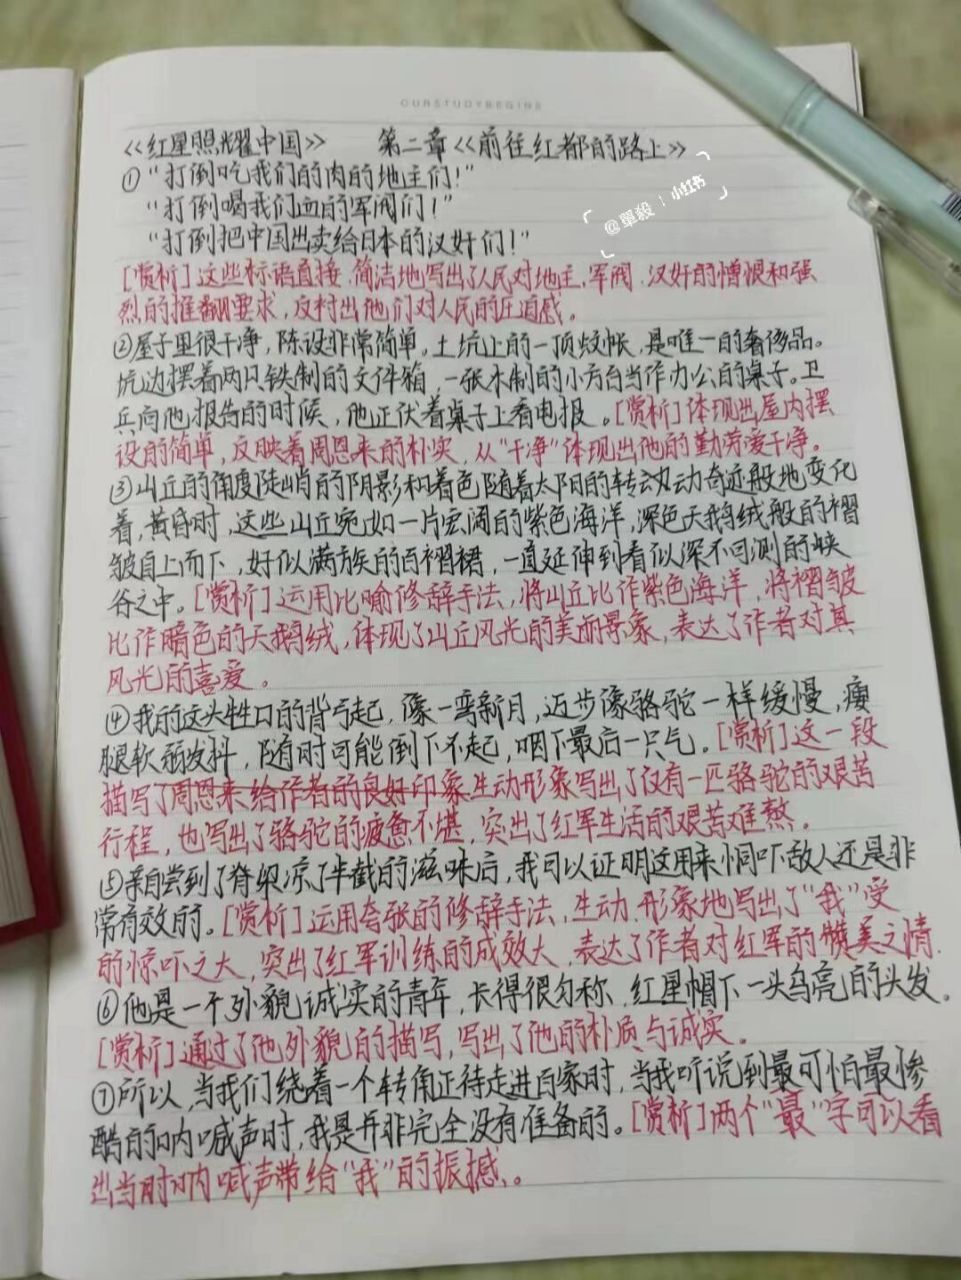 OURSTUDYBEGINS
《红星照耀中国》 第二章《前往红都的路上》
①"打倒吃我们的肉的地主们!"
"打倒喝我们血的军阀们!"
"打倒把中国出卖给日本的汉奸们!"
@單殺 小红书
[赏析]这些标语直接、简洁地写出了人民对地主、军阀、汉奸的憎恨和强
烈的推翻要求,反衬出他们对人民的压迫感。
②屋子里很干净,陈设非常简单。土坑上的一顶蚊帐,是唯一的奢侈品。
坑边摆着两只铁制的文件箱,一张木制的小方台当作办公的桌子。卫
兵向他报告的时候,他正伏着桌子上看电报。[赏析]体现出屋内摆
设的简单,反映着周恩来的朴实,从"干净"体现出他的勤劳爱干净。
③山丘的角度陡峭的阴影和着色随着太阳的转动奇迹般地变化
着,黄昏时,这些山丘宛如一片宏阔的紫色海洋,深色天鹅绒般的褶
皱自上而下,好似满族的百褶裙,一直延伸到看似深不可测的峡
谷之中。[赏析]运用比喻修辞手法,将山丘比作紫色海洋,将褶皱
比作暗色的天鹅绒,体现了山丘风光的美丽景象,表达了作者对其
风光的喜爱。
④我的这头牲口的背弓起,像一弯新月,迈步像骆驼一样缓慢,瘦
腿软弱发抖,随时可能倒下不起,咽下最后一口气。[赏析]这一段
描写了周恩来给作者的良好印象生动形象写出了仅有一匹骆驼的艰苦
行程,也写出了骆驼的疲惫不堪,突出了红军生活的艰苦难熬。
⑤亲自尝到了脊梁凉了半截的滋味后,我可以证明这用来恫吓敌人还是非
常有效的。[赏析]运用夸张的修辞手法,生动、形象地写出了"我"受
的惊吓之大,突出了红军训练的成效大,表达了作者对红军的赞美之情.
⑥他是一个外貌诚实的青年,长得很匀称,红星帽下一头乌亮的头发。
[赏析]通过了他外貌的描写,写出了他的朴质与诚实。
⑦所以,当我们绕着一个转角正待走进百家时,当我听说到最可怕最惨
酷的呐喊声时,我是并非完全没有准备的。[赏析]两个"最"字可以看
出当时呐喊声带给"我"的振撼。